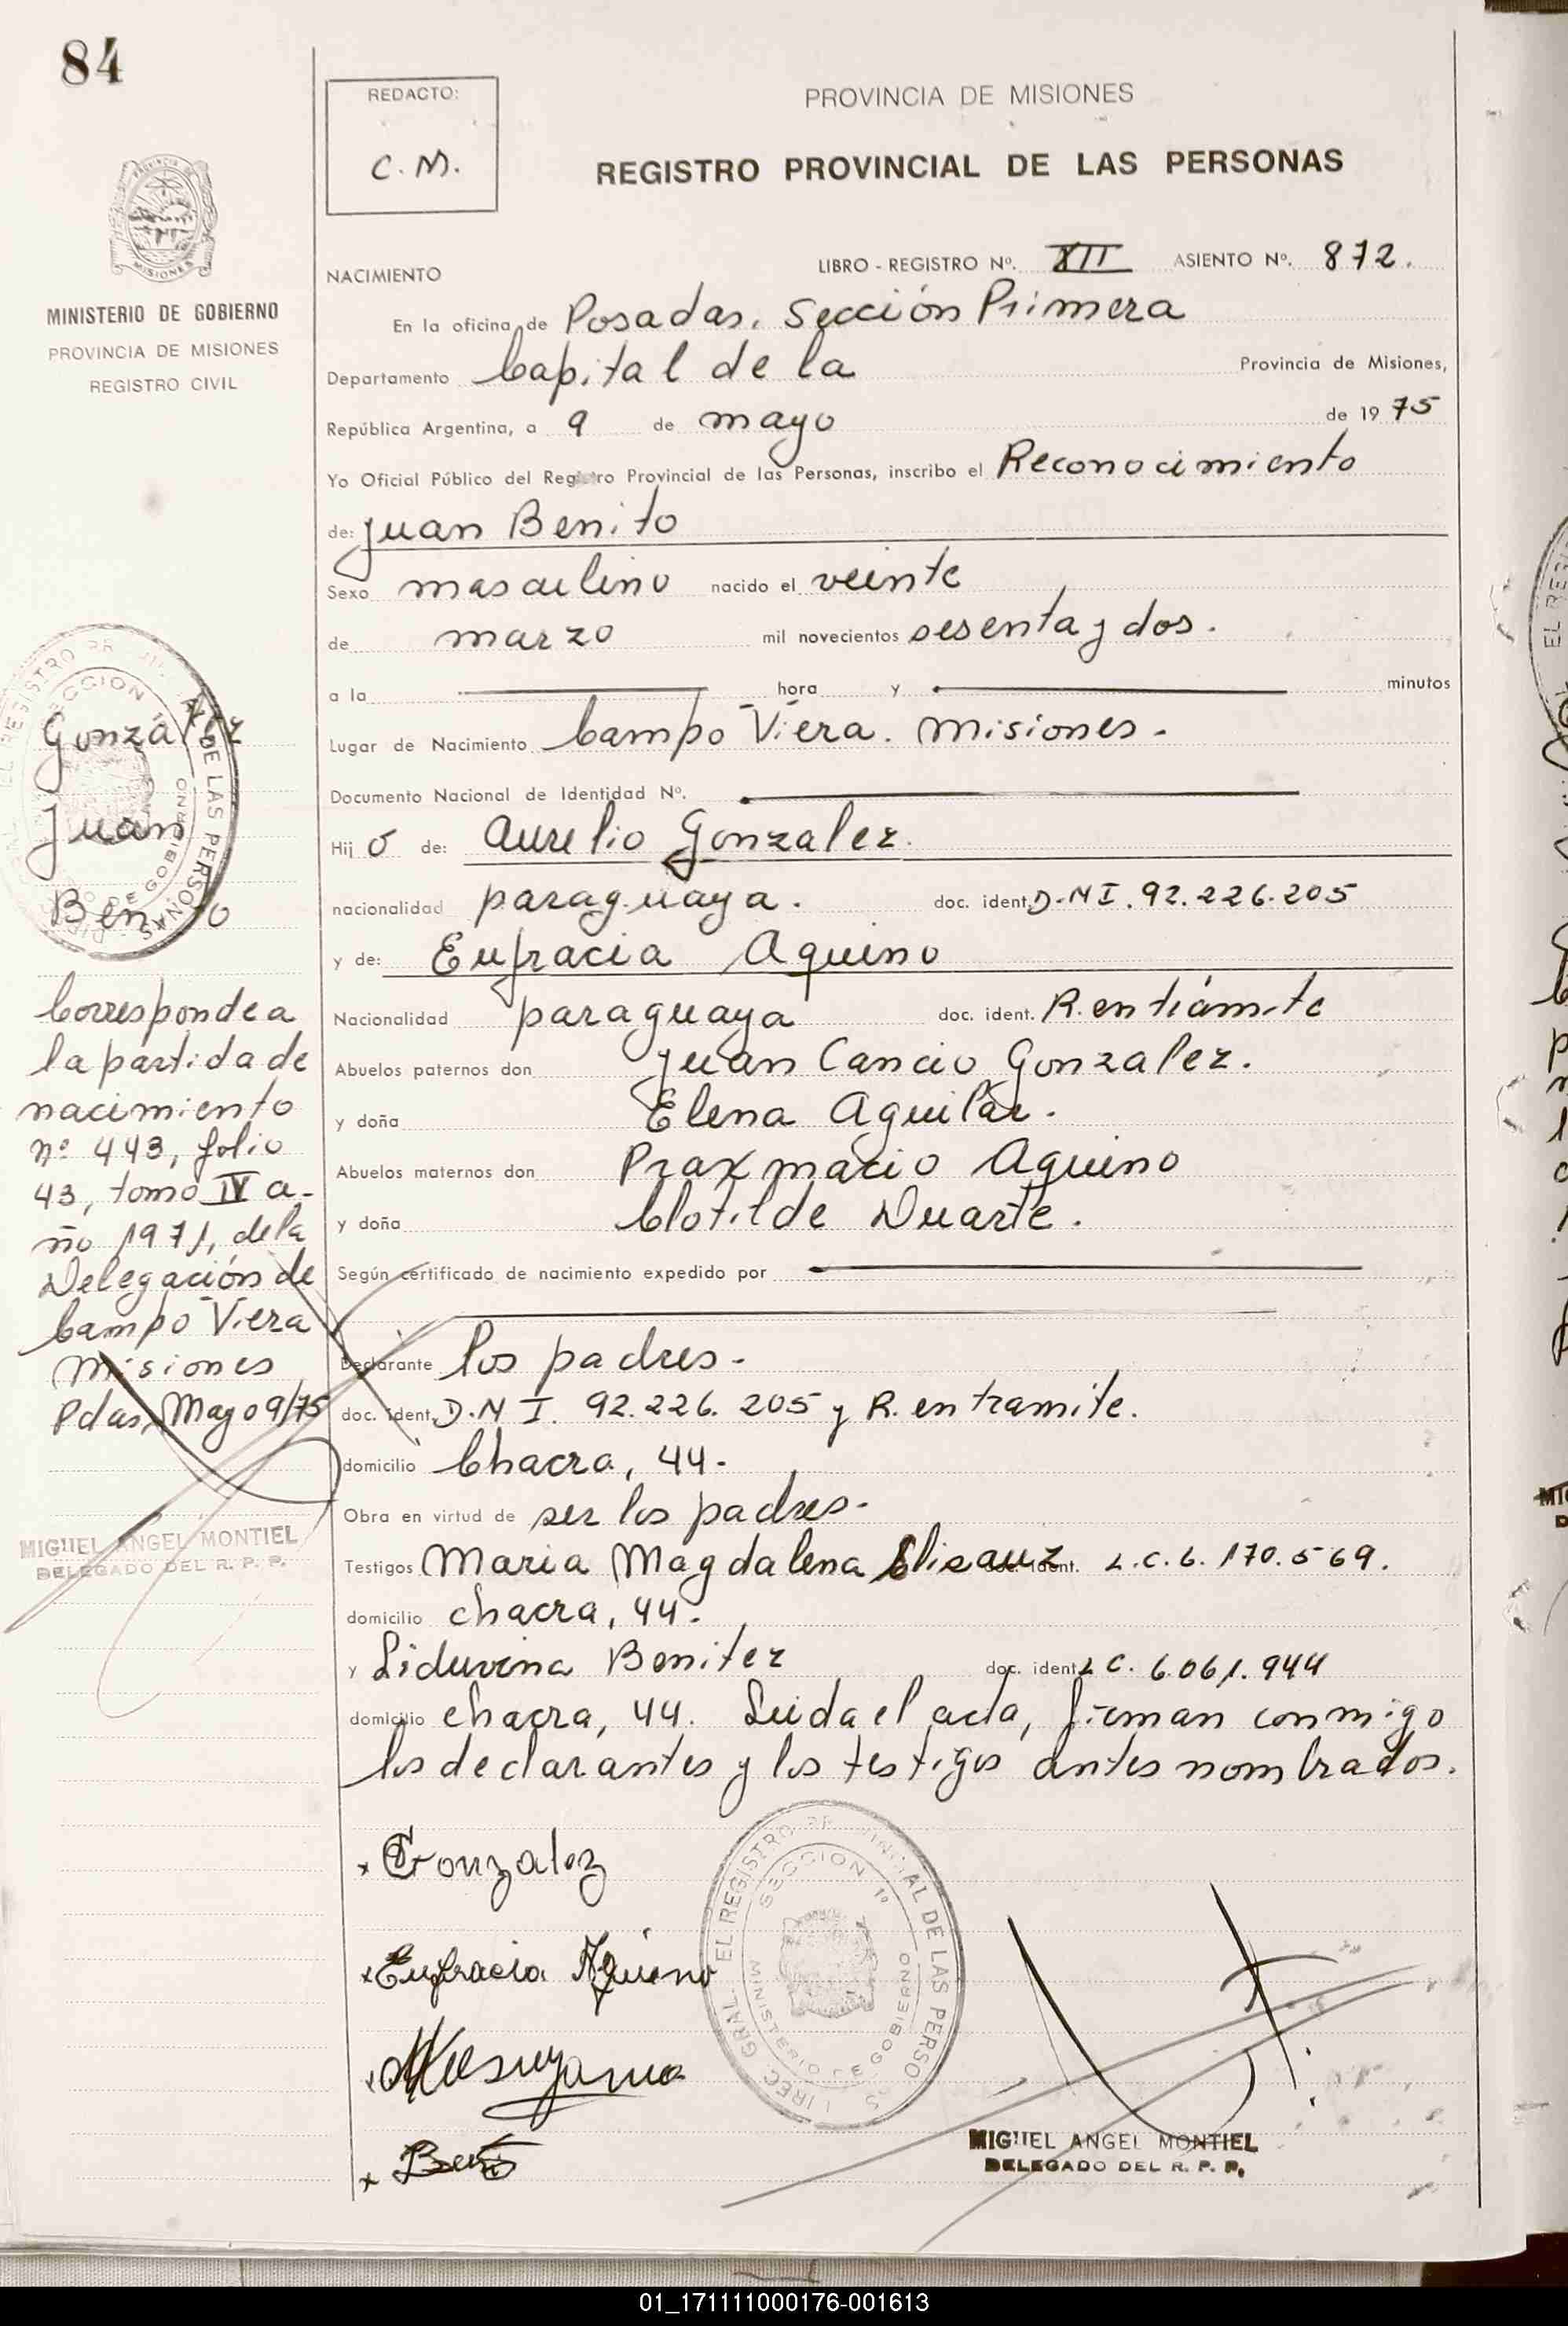 84
REDACTO:
C. M.
PROVINCIA DE MISIONES
REGISTRO PROVINCIAL DE LAS PERSONAS
MISIONES
MINISTERIO DE GOBIERNO
PROVINCIA DE MISIONES
REGISTRO CIVIL
NACIMIENTO
LIBRO - REGISTRO Nº. XII ASIENTO Nº. 872.
En la oficina de Posadas, Sección Primera
Departamento Capital de la Provincia de Misiones,
República Argentina, a 9 de mayo de 19 75
Yo Oficial Público del Registro Provincial de las Personas, inscribo el Reconocimiento
de: Juan Benito
Sexo masculino nacido el veinte
de marzo mil novecientos sesenta y dos.
a la hora y minutos
Lugar de Nacimiento Campo Viera. Misiones.
Documento Nacional de Identidad Nº.
Hij o de: Aurelio Gonzalez.
nacionalidad paraguaya. doc. ident. D.N I. 92.226.205
y de: Eufracia Aquino
Nacionalidad paraguaya doc. ident. R. en trámite
Abuelos paternos don Juan Cancio Gonzalez.
y doña Elena Aguilar.
Abuelos maternos don Praxmacio Aquino
y doña Clotilde Duarte.
Según certificado de nacimiento expedido por
Declarante los padres.
doc. ident. D.N I. 92.226.205 y R. en tramite.
domicilio Chacra, 44.
Obra en virtud de ser los padres.
Testigos Maria Magdalena doc. ident. L.C. 6.170.569.
domicilio chacra, 44.
y Liduvina Benitez doc. ident. L C. 6.061.944
domicilio chacra, 44. Leida el acta, firman conmigo
los declarantes y los testigos antes nombrados.
Gonzalez
Juan
Benito
Corresponde a
la partida de
nacimiento
nº 443, folio
43, tomo IV a-
ño 1971, de la
Delegación de
Campo Viera
Misiones
Pdas, Mayo 9/75
MIGUEL ANGEL MONTIEL
DELEGADO DEL R. P. P.
x Gonzalez
x Eufracia Aquino
x
x
DIREC. GRAL. EL REGISTRO PROVINCIAL DE LAS PERSONAS
SECCION 1º
MINISTERIO DE GOBIERNO
MIGUEL ANGEL MONTIEL
DELEGADO DEL R. P. P.
01_171111000176-001613